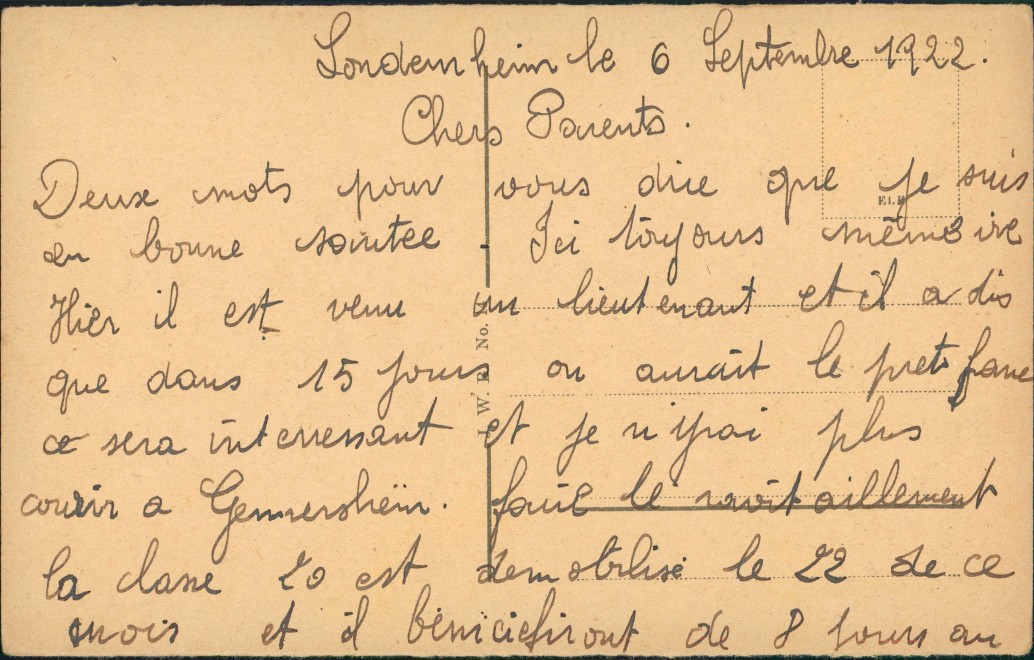 Londernheim le 6 Septembre 1922.
Chers Parents.
Deux mots pour vous dire que je suis
en bonne saintee. Ici toyours même vie
Hier il est venu un lieutenant et il a dis
que dans 15 jours on aurait le pret franc
ce sera interressant et je n'yrai plus
courir a Germersheim. faire le ravitaillement
la classe 20 est demobilisé le 22 de ce
mois et il bénicifiront de 8 jours au
L. W. No.